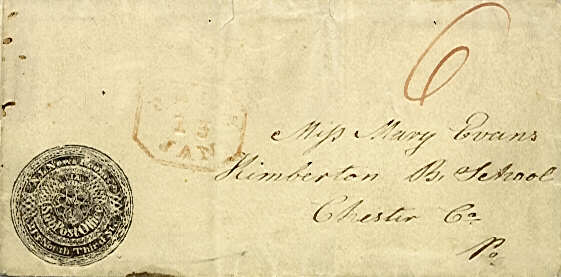 6
13
JAN
Miſs Mary Evans
Kimberton B. School
Chester Co.
Pa.
Post Office
North Third St